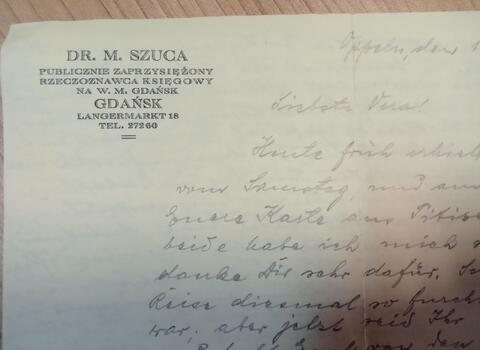 DR. M. SZUCA
PUBLICZNIE ZAPRZYSIĘŻONY
RZECZOZNAWCA KSIĘGOWY
NA W. M. GDAŃSK
GDAŃSK
LANGERMARKT 18
TEL. 27260
Oppeln, den 1
Liebste Vera!
Heute früh erhielt
vom Samstag, und
Euere Karte aus
beide habe ich mich
danke Dir sehr dafür.
Reise diesmal so furcht
war, aber jetzt seid Ihr
von den